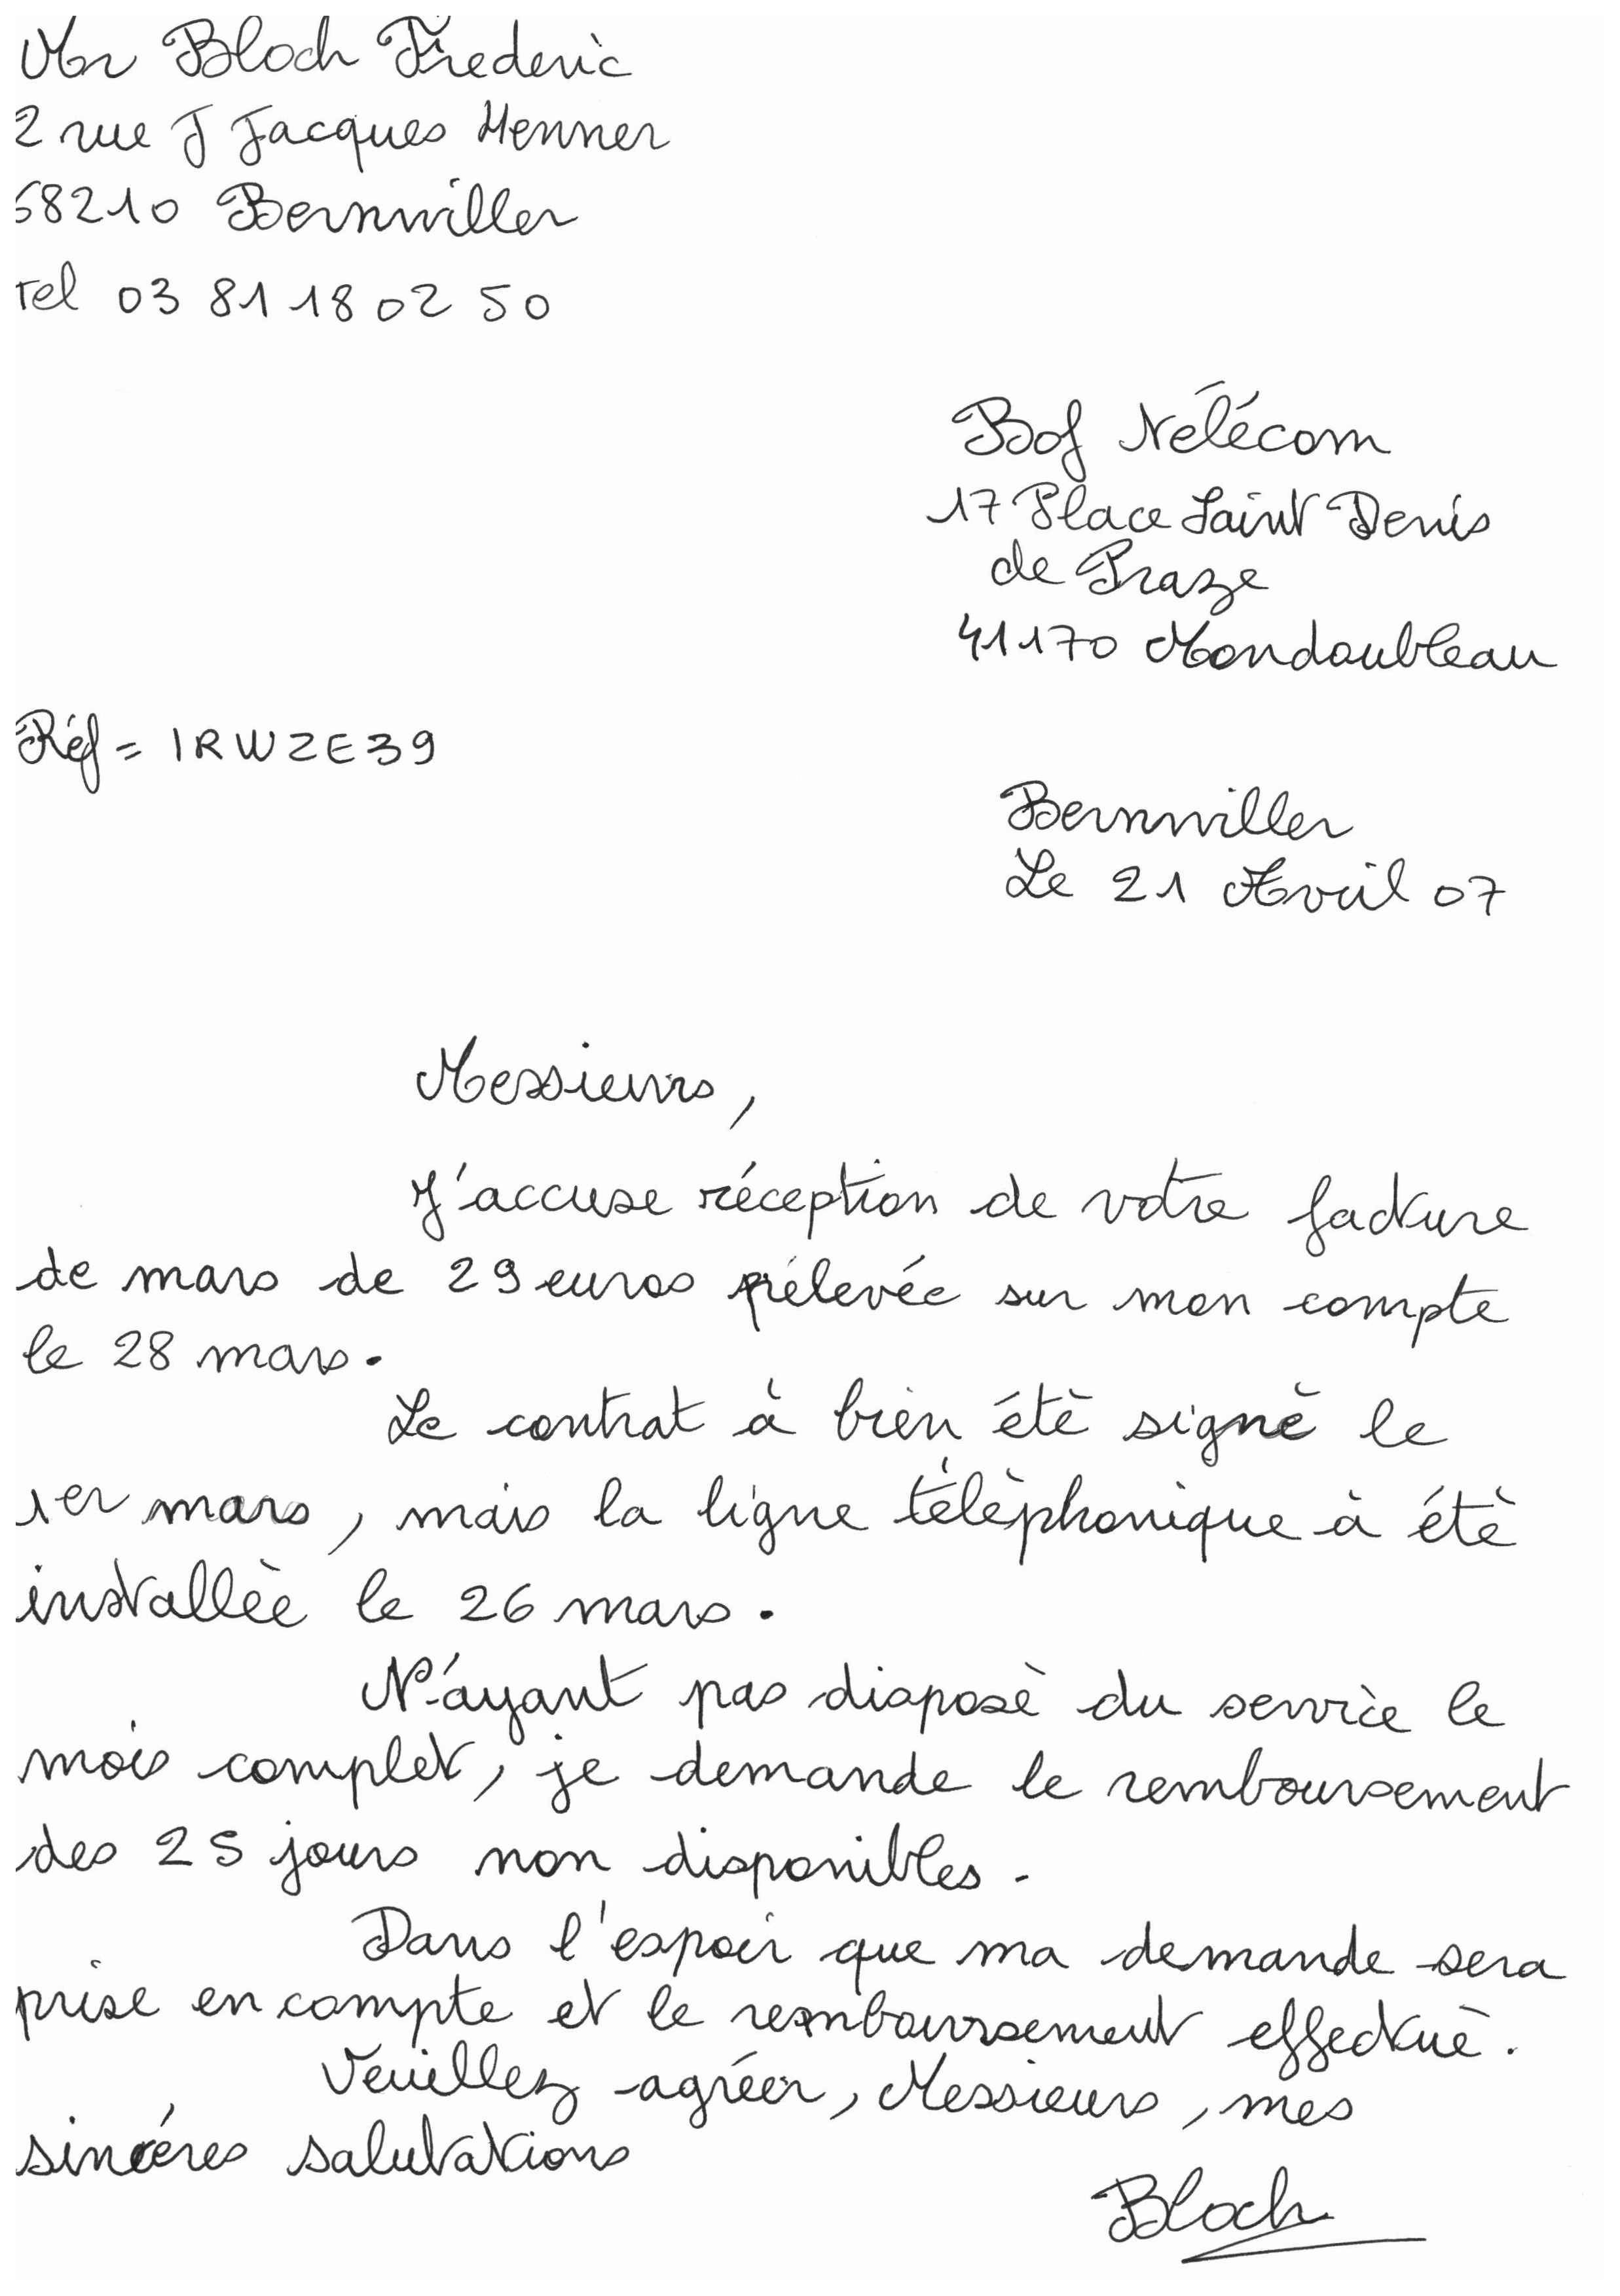 Mr Bloch Frederic
2 rue J Jacques Henner
68210 Bernwiller
tel 03 81 18 02 50
Bof Télécom
17 Place Saint Denis
de Praze
41170 Mondoubleau
Réf = IRWZE39
Bernwiller
Le 21 Avril 07
Messieurs,
J'accuse réception de votre facture
de mars de 29 euros prélevée sur mon compte
le 28 mars.
Le contrat à bien été signé le
1er mars, mais la ligne téléphonique à été
installée le 26 mars.
N'ayant pas disposé du service le
mois complet, je demande le remboursement
des 25 jours non disponibles.
Dans l'espoir que ma demande sera
prise en compte et le remboursement effectué.
Veuillez agréer, Messieurs, mes
sincéres salutations
Bloch